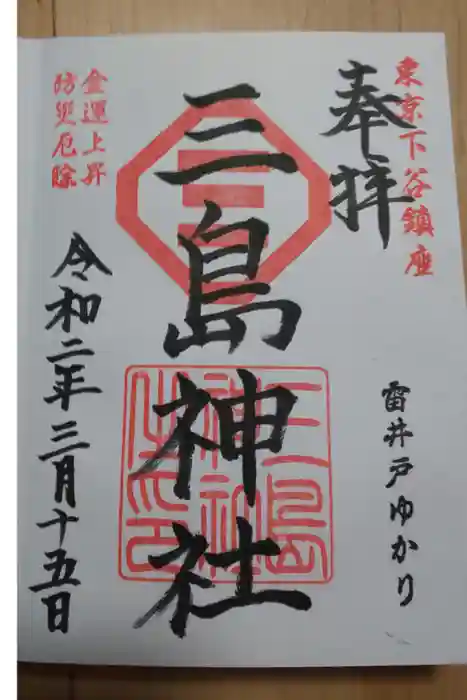 東京下谷鎮座
奉拝
雷井戸ゆかり
三島神社
三島
神社
之印
金運上昇
防災厄除
令和二年三月十五日